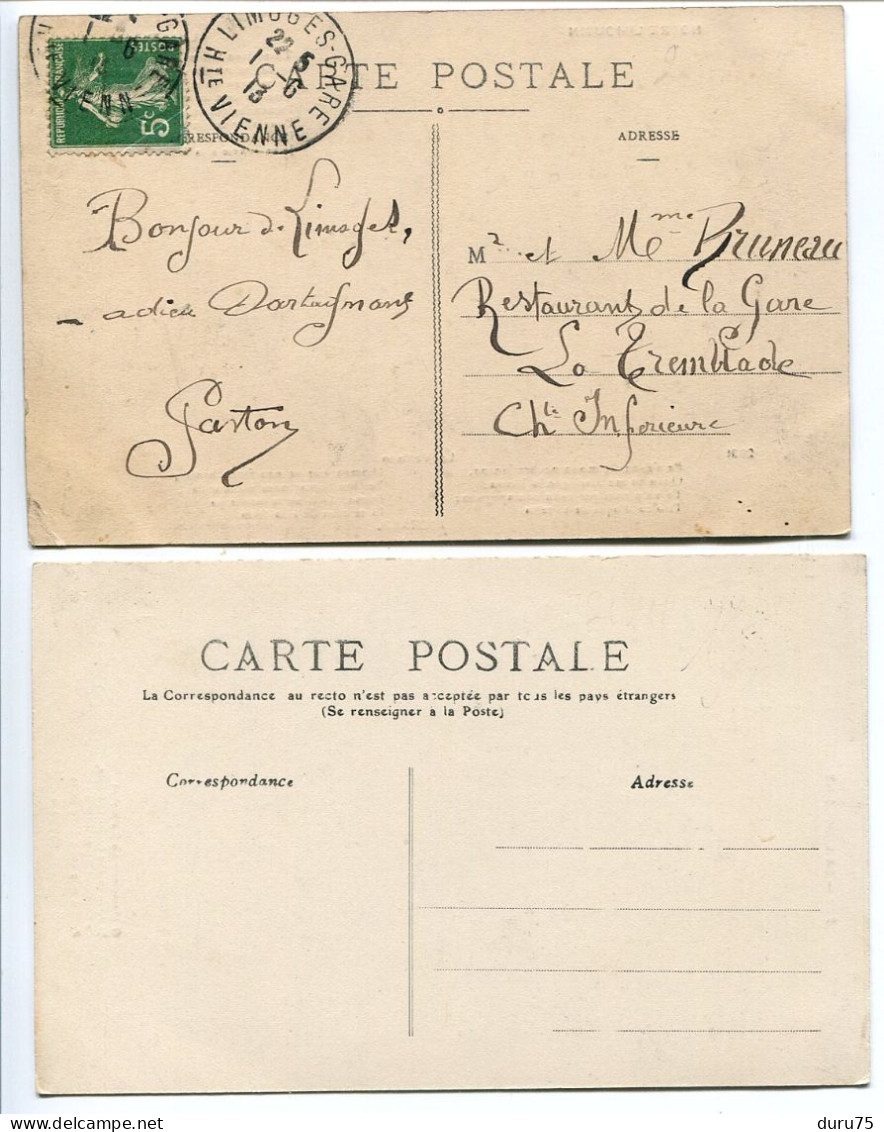 REPUBLIQUE FRANÇAISE
POSTES
5c
LIMOGES-GARE
22 5
1-6
13
Hte VIENNE
CARTE POSTALE
CORRESPONDANCE
ADRESSE
Bonjour de Limoges,
- adieu Dartagnans
Gaston
Mr et Mme Bruneau
Restaurant de la Gare
La Tremblade
Chte Inferieure
CARTE POSTALE
La Correspondance au recto n'est pas acceptée par tous les pays étrangers
(Se renseigner à la Poste)
Correspondance
Adresse
duru75